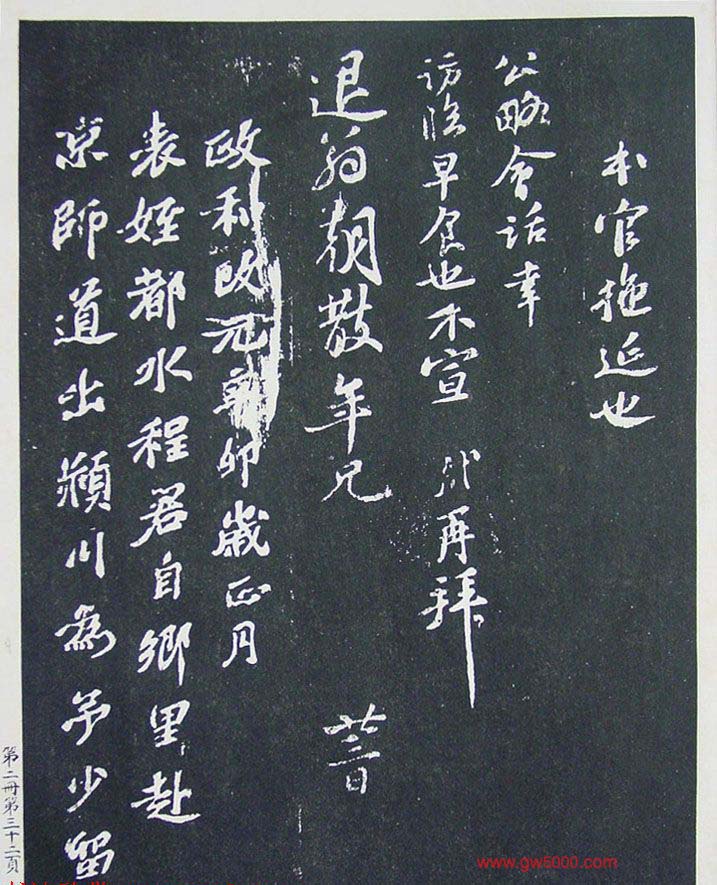 本官拖延也
公略會話幸
訪臨早食也不宣 軾再拜
退翁朝散年兄
政和改元辛卯歲正月
表姪都水程君自鄉里赴
京師道出潁川為予少留
第二冊第三十二頁
www.gw5000.com